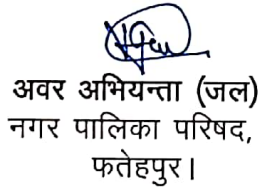 अवर अभियन्ता (जल)
नगर पालिका परिषद,
फतेहपुर।